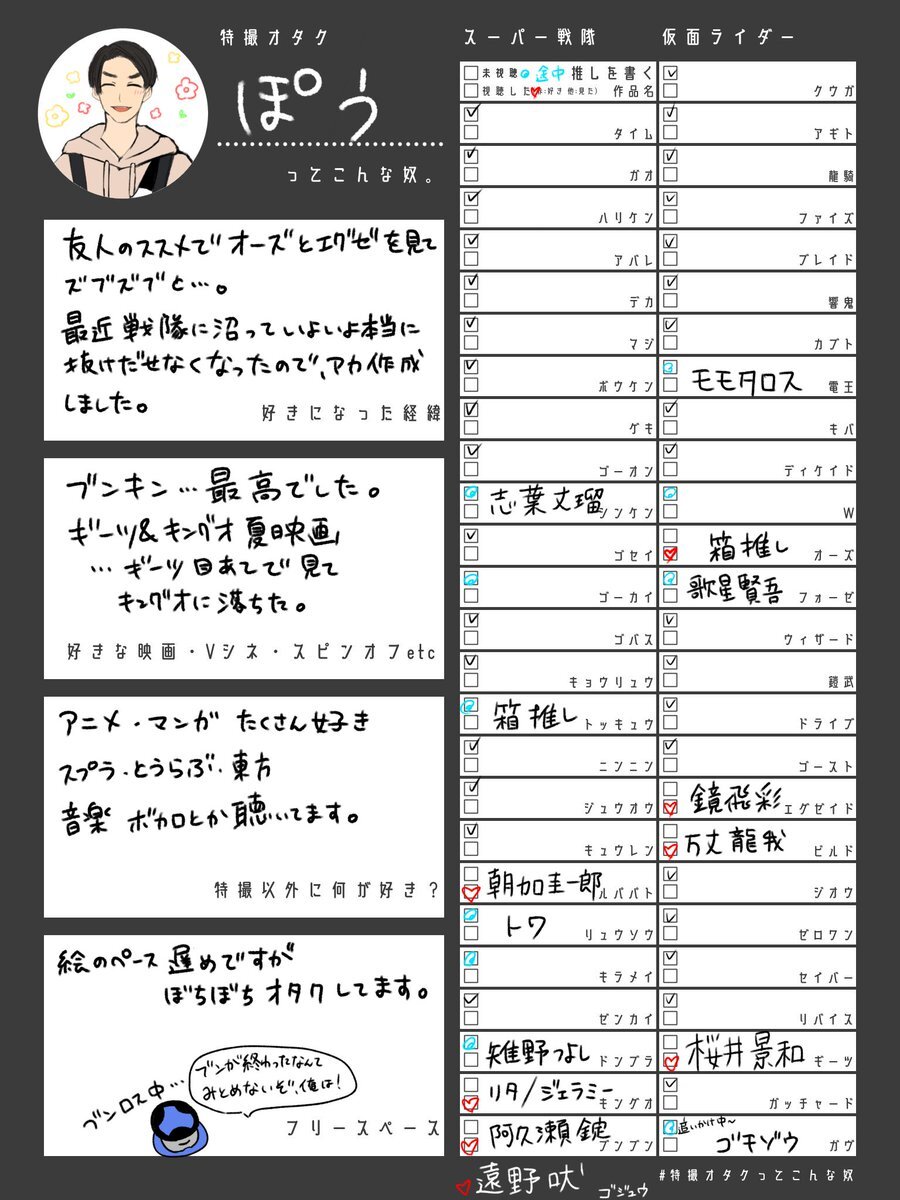 特撮オタク
ぽう
ってこんな奴。
友人のススメで オーズとエグゼを見て
ズブズブと…。
最近 戦隊に沼っていよいよ本当に
抜けだせなくなったので、アカ作成
しました。
好きになった経緯
ブンキン…最高でした。
ギーツ&キングオ 夏映画
…ギーツ目あてで見て
キングオに落ちた。
好きな映画・Vシネ・スピンオフetc
アニメ・マンガ たくさん好き
スプラ・とうらぶ・東方
音楽 ボカロとか聴いてます。
特撮以外に何が好き?
絵のペース 遅めですが
ぼちぼちオタクしてます。
ブンロス中…
ブンが終わったなんて
みとめないぞ、俺は!
フリースペース
スーパー戦隊
未視聴 途中 推しを書く
視聴した 好き 他:見た) 作品名
タイム
ガオ
ハリケン
アバレ
デカ
マジ
ボウケン
ゲキ
ゴーオン
志葉丈瑠 シンケン
ゴセイ
ゴーカイ
ゴバス
キョウリュウ
箱推し トッキュウ
ニンニン
ジュウオウ
キュウレン
朝加圭一郎 ルパパト
トワ リュウソウ
キラメイ
ゼンカイ
雉野つよし ドンブラ
リタ/ジェラミー キングオ
阿久瀬錠 ブンブン
遠野吠 ゴジュウ
仮面ライダー
クウガ
アギト
龍騎
ファイズ
ブレイド
響鬼
カブト
モモタロス 電王
キバ
ディケイド
W
箱推し オーズ
歌星賢吾 フォーゼ
ウィザード
鎧武
ドライブ
ゴースト
鏡飛彩 エグゼイド
万丈龍我 ビルド
ジオウ
ゼロワン
セイバー
リバイス
桜井景和 ギーツ
ガッチャード
追いかけ中~
ゴチゾウ ガヴ
#特撮オタクってこんな奴